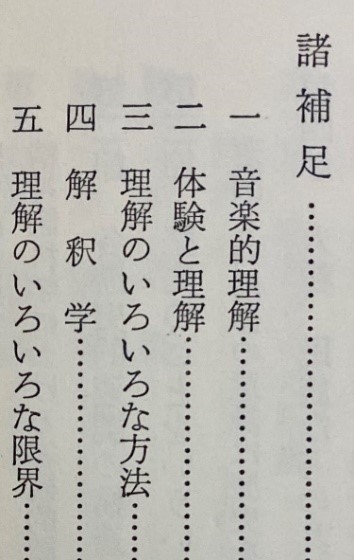 諸補足……………………
一 音楽的理解……………
二 体験と理解……………
三 理解のいろいろな方法……
四 解釈学……………
五 理解のいろいろな限界……